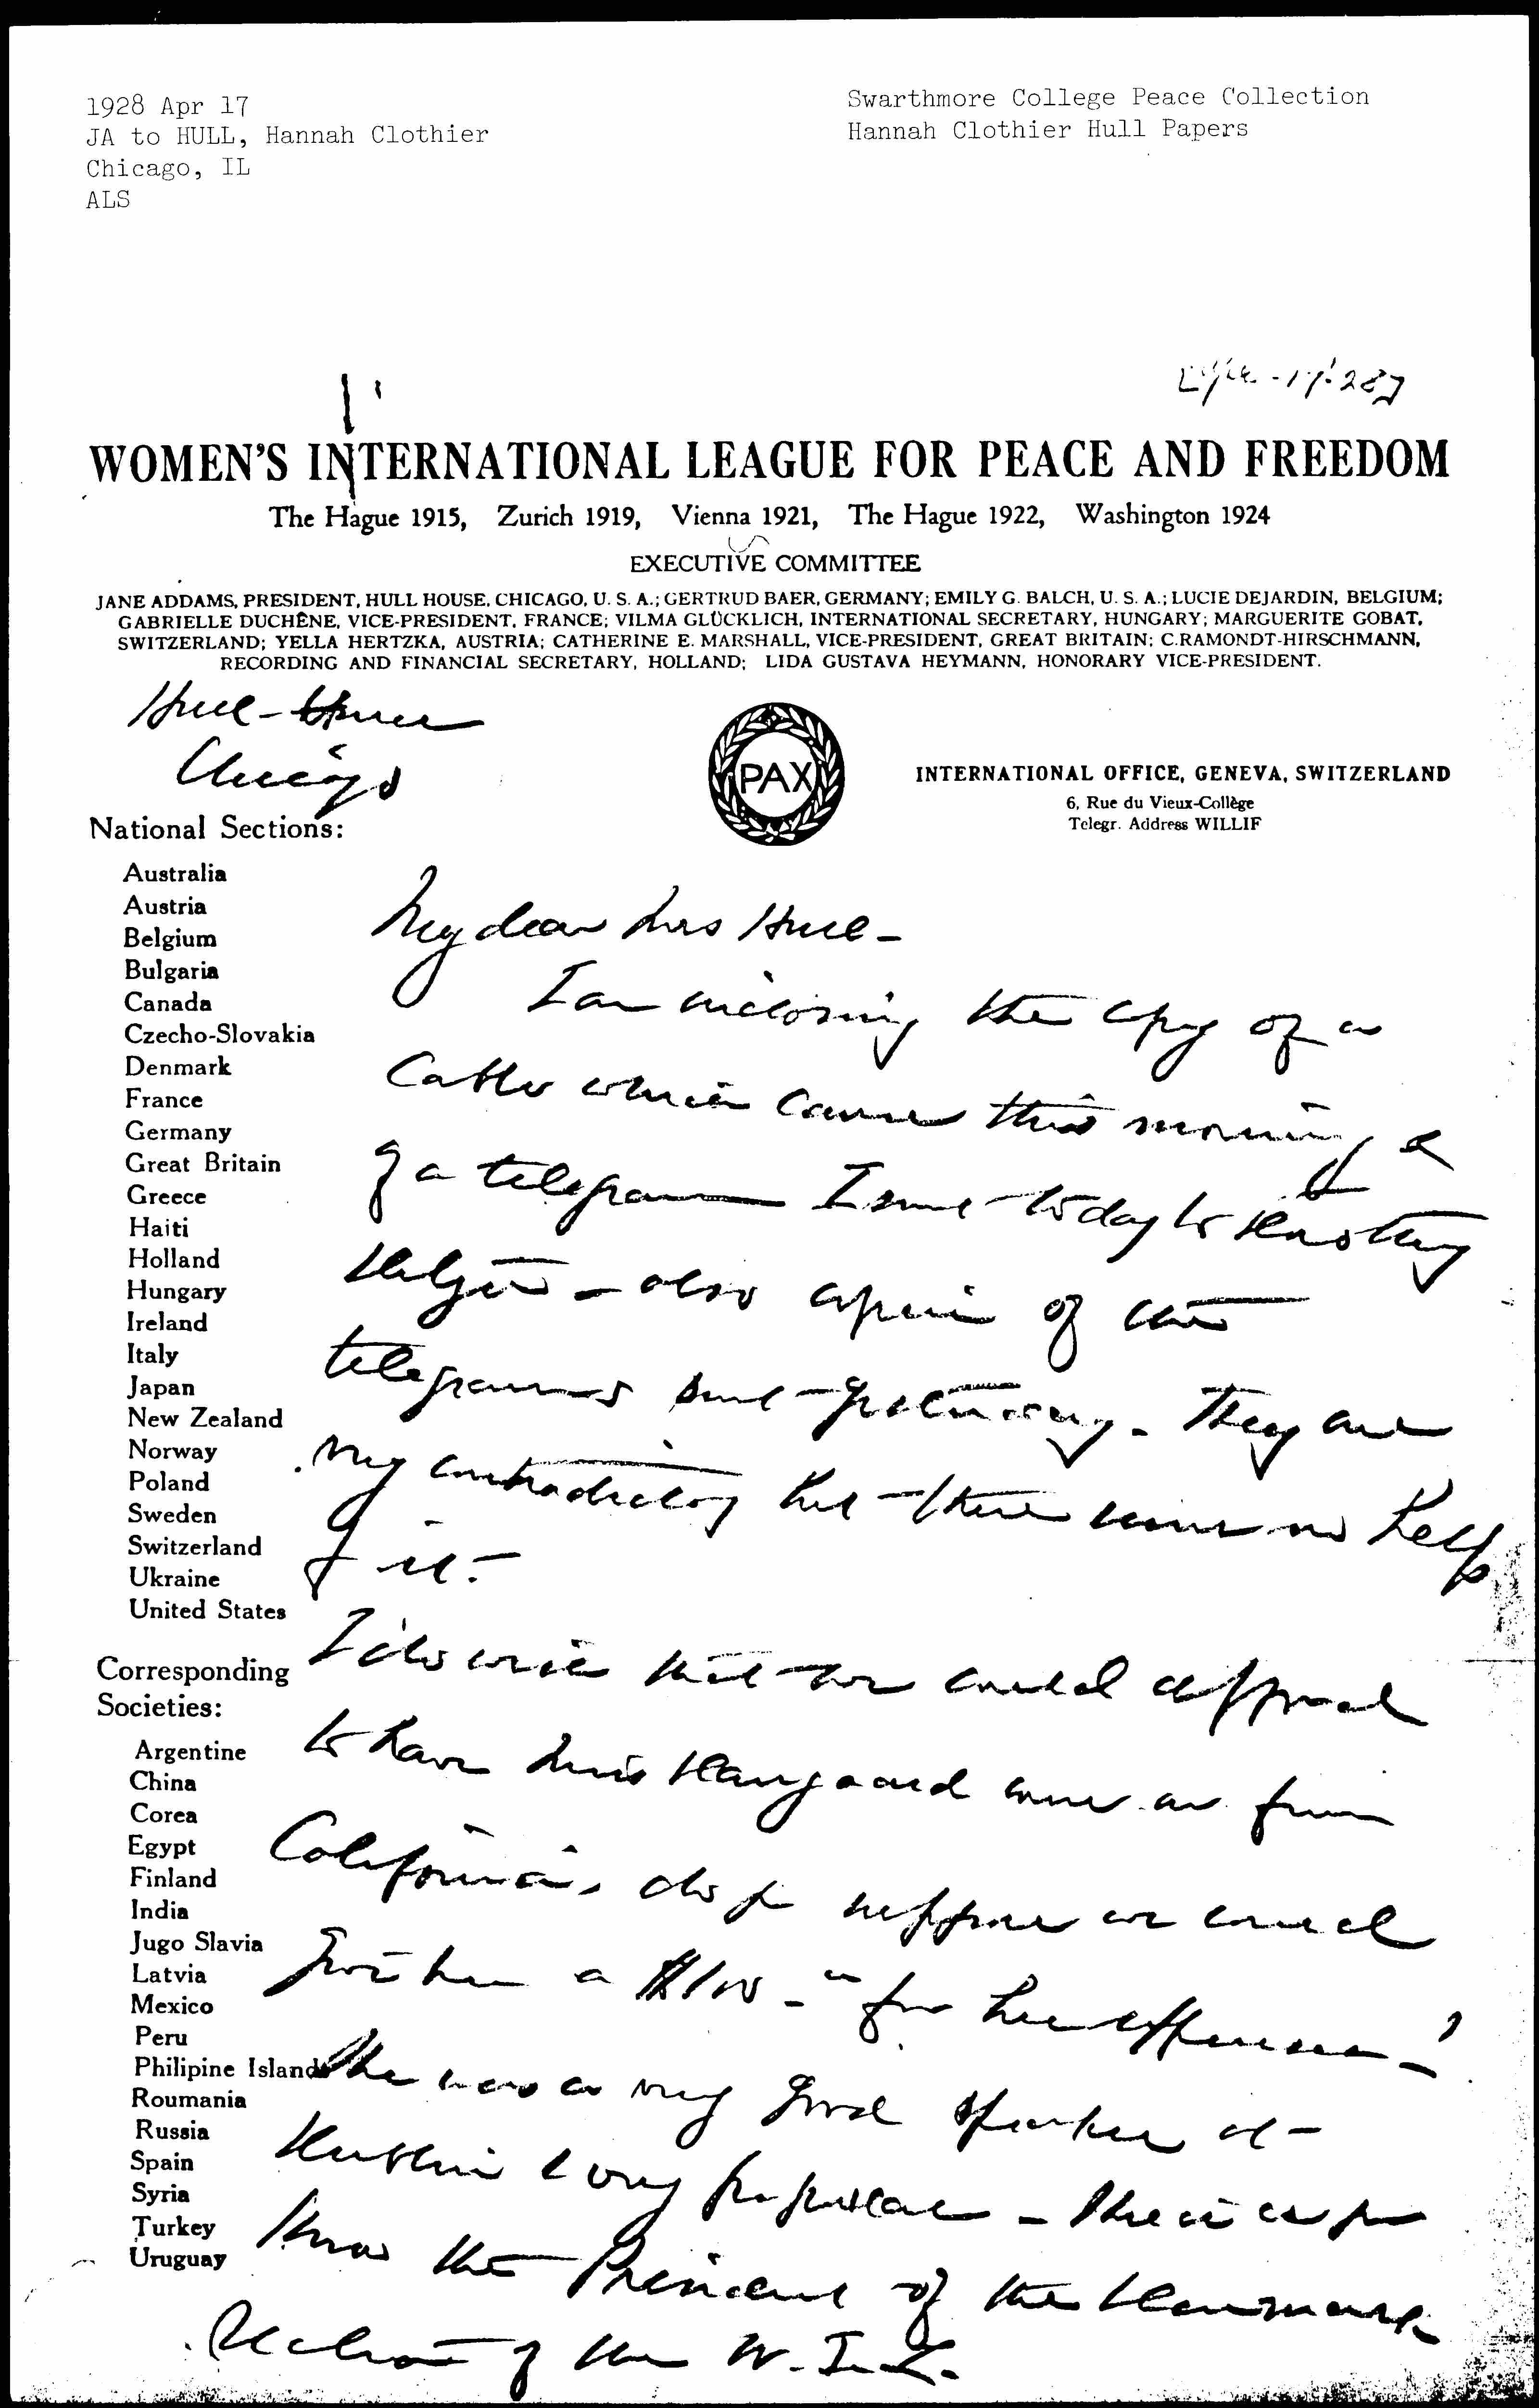 1928 Apr 17
JA to HULL, Hannah Clothier
Chicago, IL
ALS
Swarthmore College Peace Collection
Hannah Clothier Hull Papers
WOMEN'S INTERNATIONAL LEAGUE FOR PEACE AND FREEDOM
The Hague 1915, Zurich 1919, Vienna 1921, The Hague 1922, Washington 1924
EXECUTIVE COMMITTEE
JANE ADDAMS, PRESIDENT, HULL HOUSE, CHICAGO, U. S. A.; GERTRUD BAER, GERMANY; EMILY G. BALCH, U. S. A.; LUCIE DEJARDIN, BELGIUM;
GABRIELLE DUCHÊNE, VICE-PRESIDENT, FRANCE; VILMA GLÜCKLICH, INTERNATIONAL SECRETARY, HUNGARY; MARGUERITE GOBAT,
SWITZERLAND; YELLA HERTZKA, AUSTRIA; CATHERINE E. MARSHALL, VICE-PRESIDENT, GREAT BRITAIN; C.RAMONDT-HIRSCHMANN,
RECORDING AND FINANCIAL SECRETARY, HOLLAND; LIDA GUSTAVA HEYMANN, HONORARY VICE-PRESIDENT.
Hull-House
Chicago
PAX
INTERNATIONAL OFFICE, GENEVA, SWITZERLAND
6, Rue du Vieux-Collège
Telegr. Address WILLIF
National Sections:
Australia
Austria
Belgium
Bulgaria
Canada
Czecho-Slovakia
Denmark
France
Germany
Great Britain
Greece
Haiti
Holland
Hungary
Ireland
Italy
Japan
New Zealand
Norway
Poland
Sweden
Switzerland
Ukraine
United States
Corresponding
Societies:
Argentine
China
Corea
Egypt
Finland
India
Jugo Slavia
Latvia
Mexico
Peru
Philipine Islands
Roumania
Russia
Spain
Syria
Turkey
Uruguay
My dear Mrs Hull -
I am inclosing the copy of a
cable which came this morning &
of a telegram I sent today to
- also copies of the
telegrams sent yesterday. They are
very contradictory but there seems no help
for it.
I do wish that we could afford
to have Miss come on from
California, do you suppose we could
give her a $100 - for her expenses -
She was a very good speaker at
Dublin & very popular - She is as you
know the President of the Denmark
Section of the W.I.L.